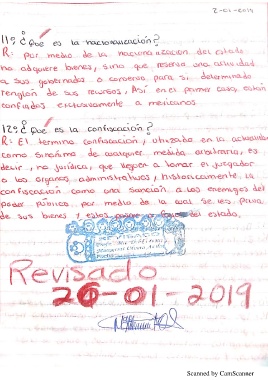 2-01-2019
11º ¿Qué es la nacionalización?
R: por medio de la nacionalización del estado
no adquiere bienes, sino que reserva una actividad
a sus gobernados o conserva para si, determinado
renglón de sus recursos, Así en el primer caso, están
confiados exclusivamente a mexicanos.
12º ¿Qué es la confiscación?
R: El termino confiscación, utilizado en la actualidad
como sinónimo de cualquier medida arbitraria, es
decir, no jurídica, que lleguen a tomar el juzgador
o los órganos administrativos, históricamente, la
confiscación como una sanción a los enemigos del
poder público, por medio de la cual se les priva
de sus bienes y estos a favor del estado.
Revisado
26-01-2019
Scanned by CamScanner